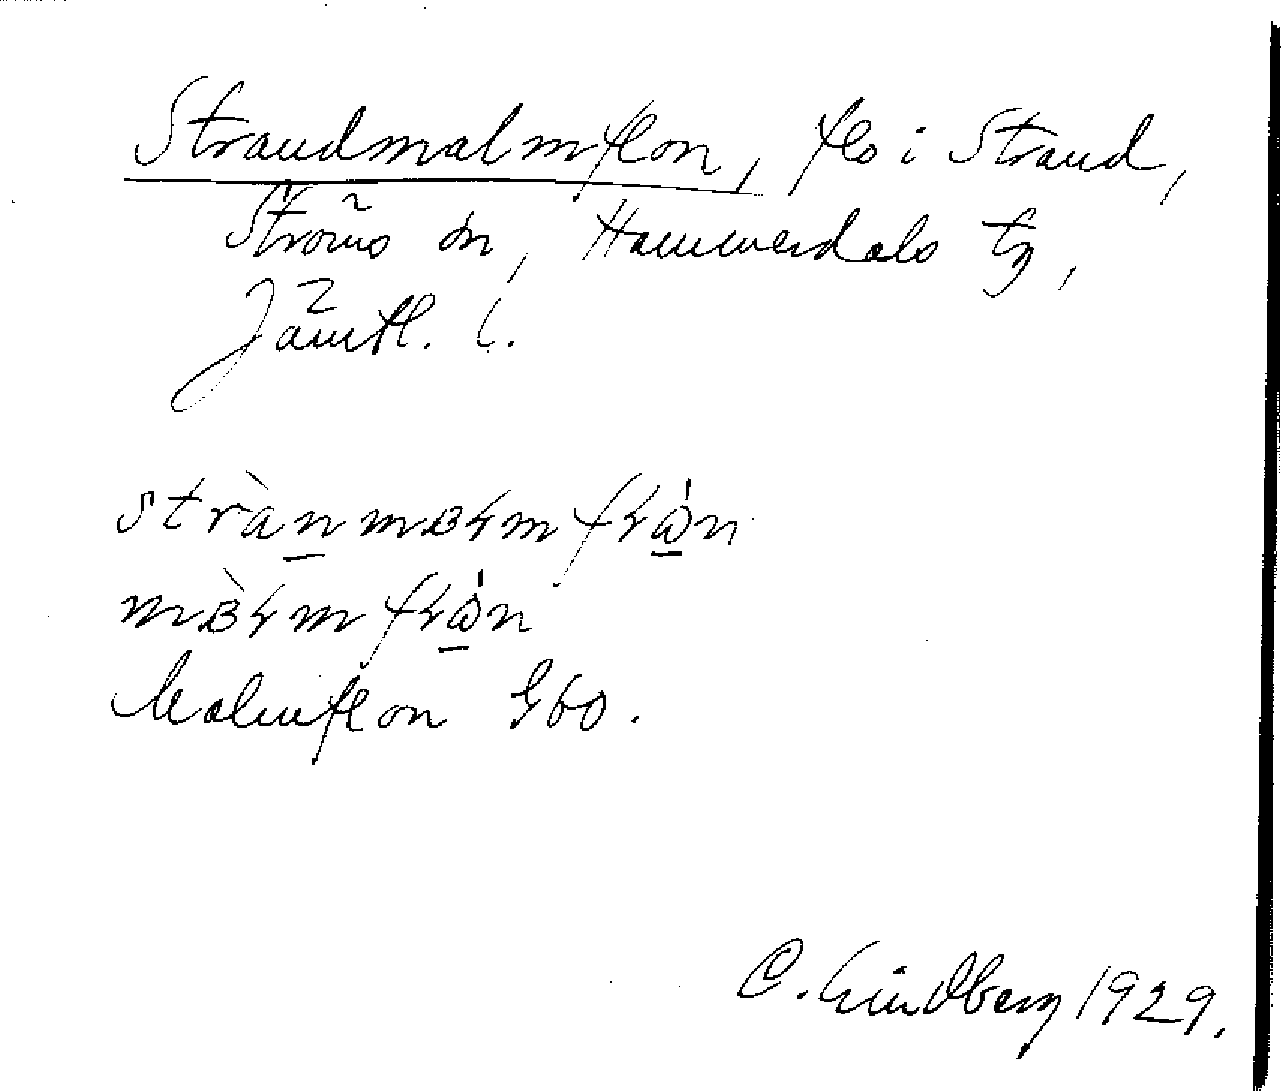 Strandmalmflon, flo i Strand,
Ströms sn, Hammerdals tg,
Jämtl. l.
stràn mɒɽm fɽɷ̀n
mɒ̀ɽm fɽɷ̀n
Malmflon Gbo.
C. Lindberg 1929.